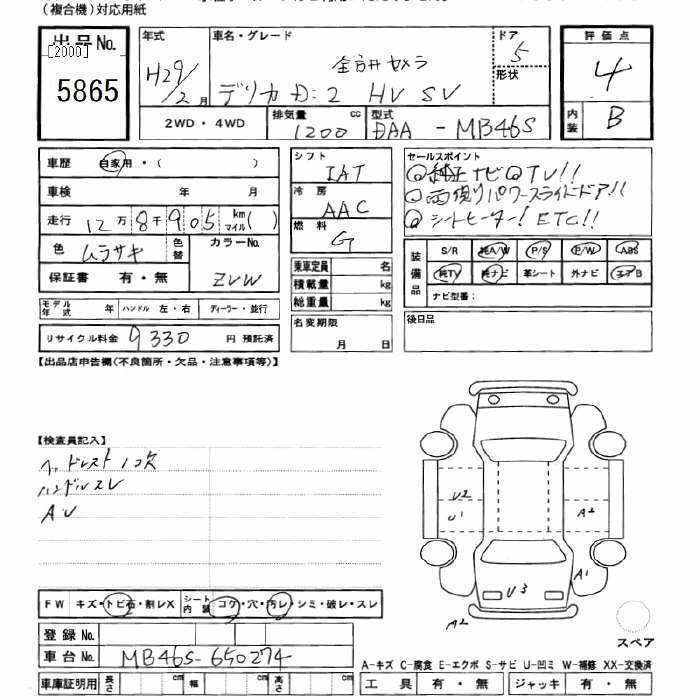 (複合機)対応用紙
出品No.
[2000]
5865
年式
H29/2月
車名・グレード
全方位カメラ
デリカD:2 HV SV
ドア
5
形状
評価点
4
内装 B
2WD・4WD
排気量 1200 cc
型式 DAA-MB46S
車歴 自家用・( )
車検 年 月
走行 12万8千905 km マイル( )
色 ムラサキ 色替
カラーNo. ZVW
保証書 有・無
モデル年式 年 ハンドル 左・右 ディーラー・並行
リサイクル料金 9330 円 預託済
シフト IAT
冷房 AAC
燃料 G
乗車定員 名
積載量 kg
総重量 kg
名変期限
月 日
セールスポイント
◎純正ナビ◎TV!!
◎両側パワースライドドア!!
◎シートヒーター! ETC!!
装備品
S/R 純A/W P/S P/W ABS
純TV 純ナビ 革シート 外ナビ エアB
ナビ型番:
後日品
【出品店申告欄(不良箇所・欠品・注意事項等)】
【検査員記入】
ヘッドレスト1コ欠
ハンドルスレ
AU
U2
U1
A2
A1
U3
A2
FW キズ・トビ石・割レX
シート内装 コゲ・穴・汚レ・シミ・破レ・スレ
登録No.
車台No. MB46S-650274
車庫証明用 長さ cm 幅 cm 高さ cm
スペア
A-キズ C-腐食 E-エクボ S-サビ U-凹ミ W-補修 XX-交換済
工具 有・無 ジャッキ 有・無